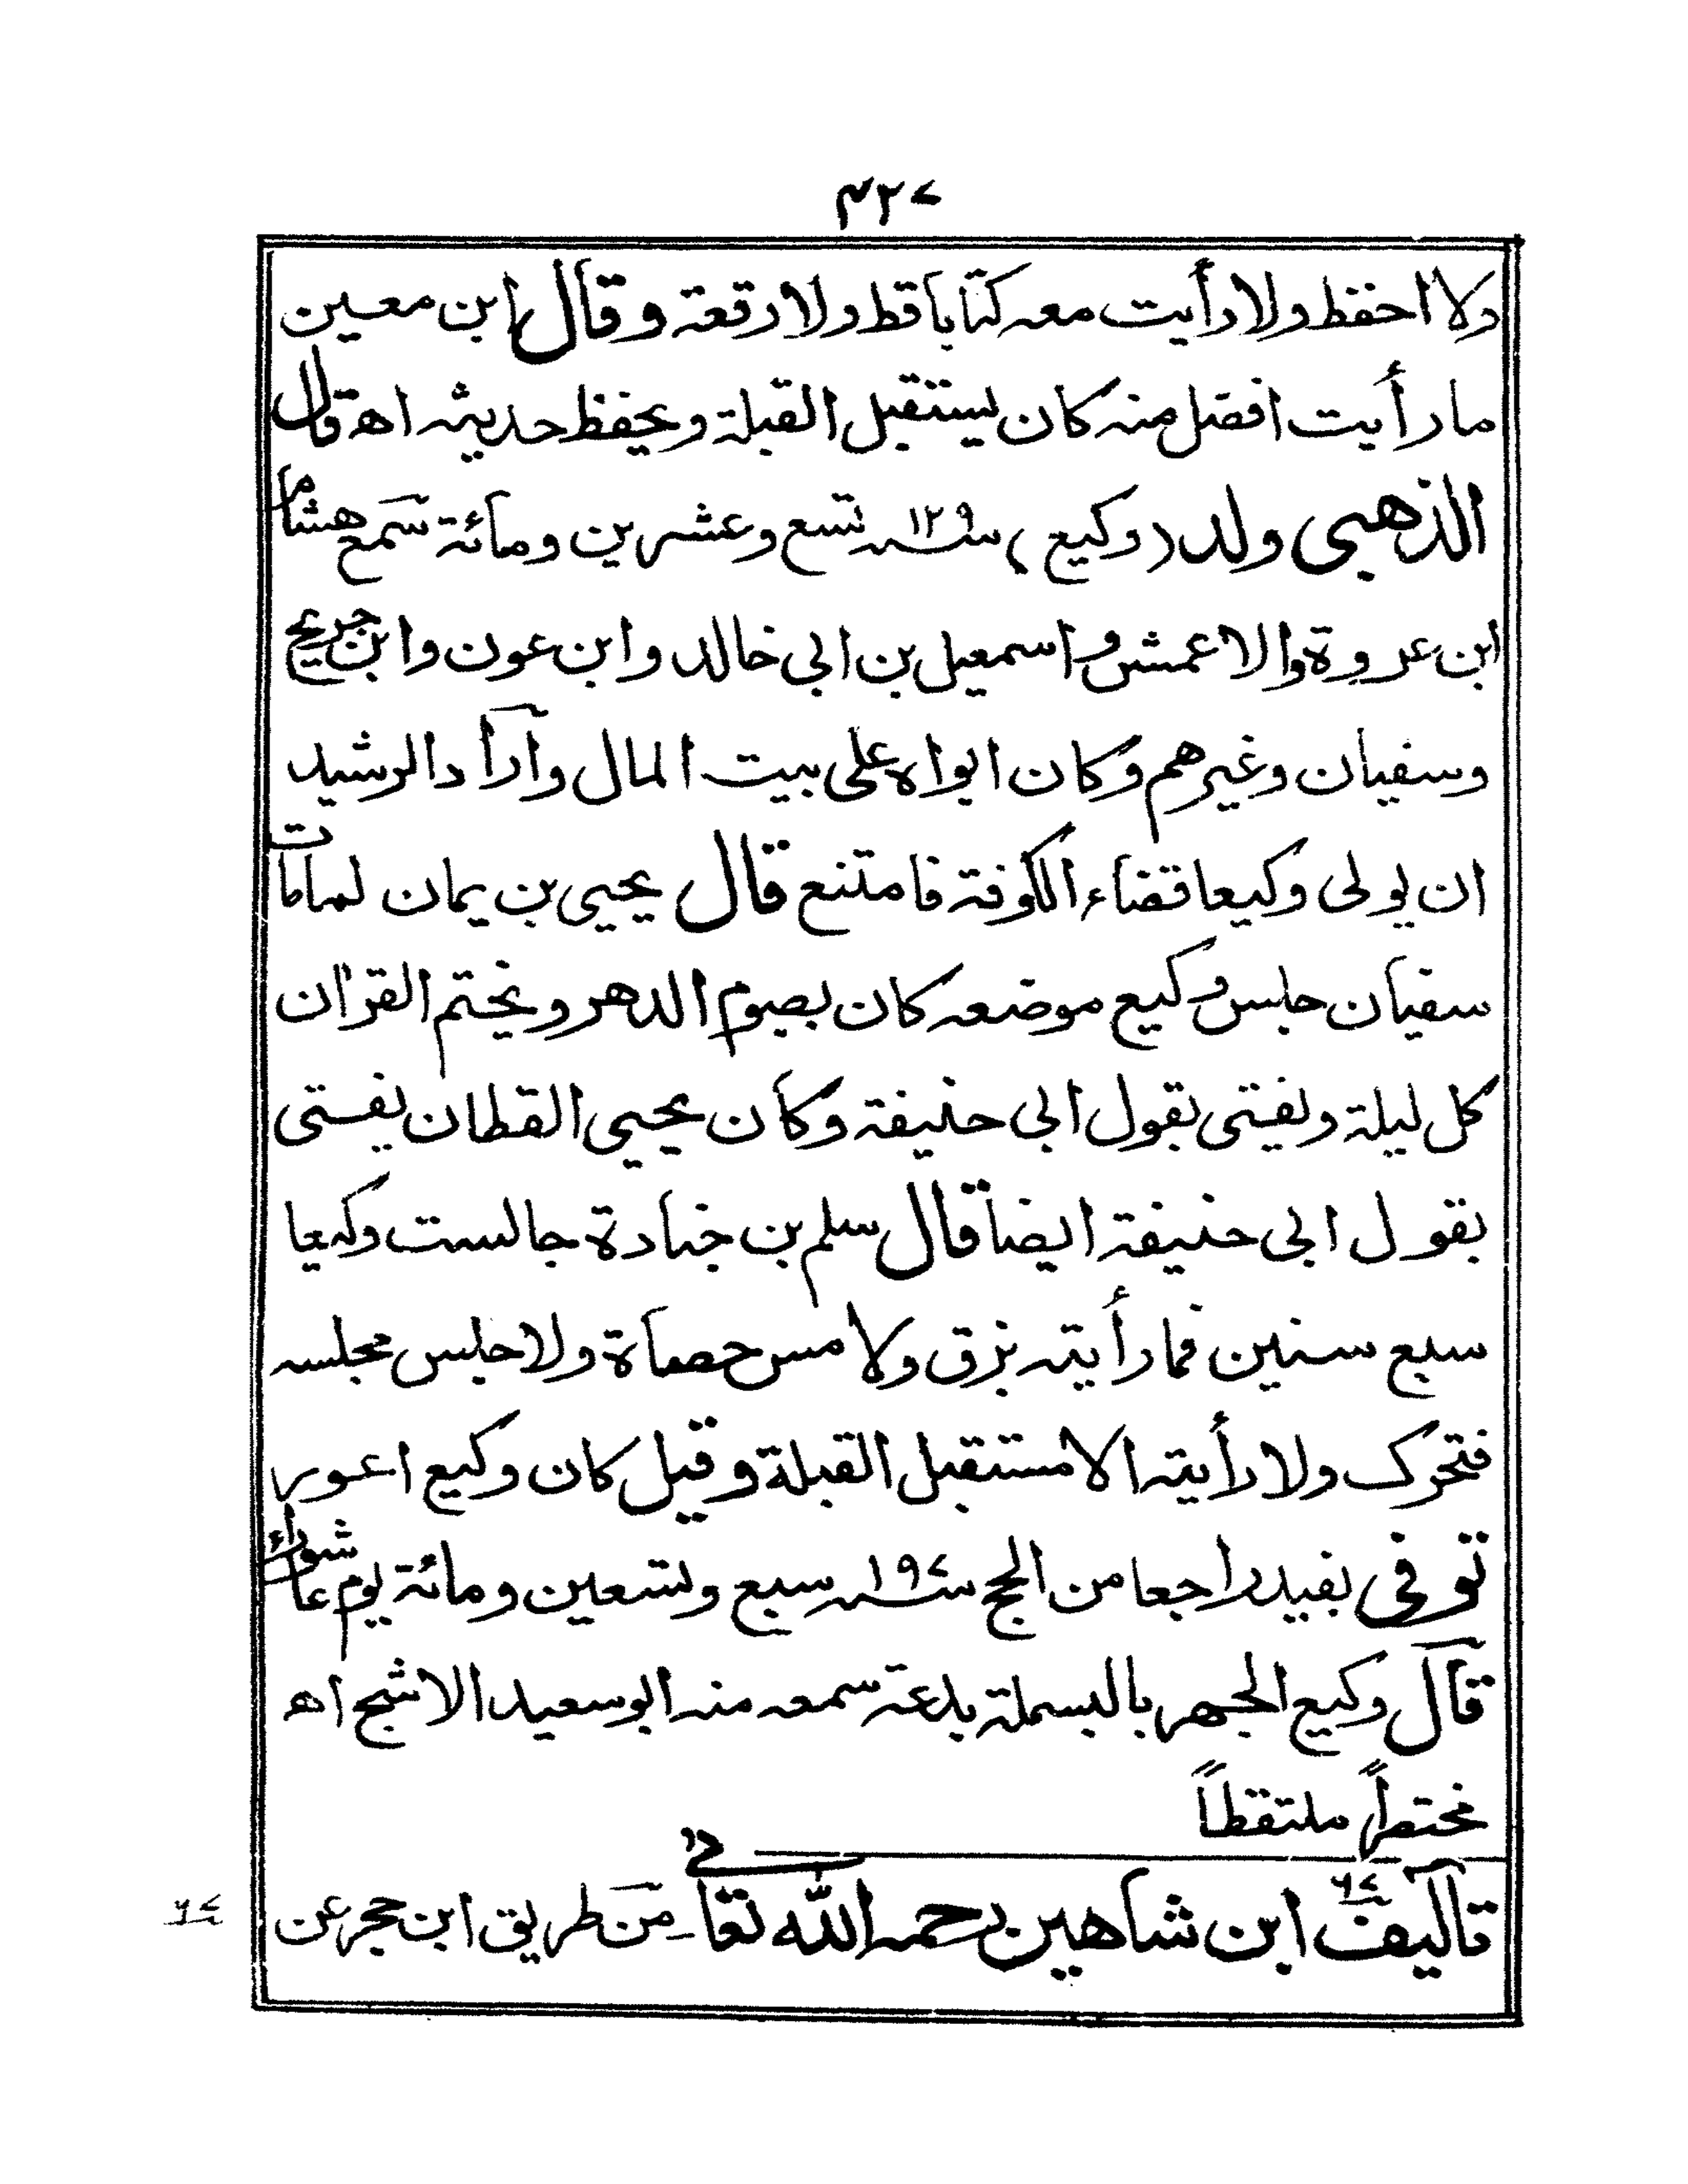 ۴۲۷
ولا احفظ ولا رأيت معه كتابا قط ولا رقعة وقال ابن معين
ما رأيت افضل منه كان يستقبل القبلة ويحفظ حديثه اه قال
الذهبي ولد (وكيع) سنه ١٢٩ تسع وعشرين ومائة سمع هشام
ابن عروة والاعمش واسمعيل بن ابى خالد وابن عون وابن جريج
وسفيان وغيرهم وكان ابواه على بيت المال وآرأد الرشيد
ان يولى وكيعا قضاء الكوفة فامتنع قال يحيى بن يمان لما مات
سفيان جلس وكيع موضعه كان يصوم الدهر ويختم القران
كل ليلة ويفتى بقول ابى حنيفة وكان يحيى القطان يفتى
بقول ابى حنيفة ايضا قال سلم بن جنادة جالست وكيعا
سبع سنين فما رأيته بزق ولا مس حصاة ولا جلس مجلسه
فتحرك ولا رأيته الا مستقبل القبلة وقيل كان وكيع اعور
توفى بفيد راجعا من الحج سنه ١٩٧ سبع وتسعين ومائة يوم عاشوراء
قال وكيع الجهر بالبسملة بدعة سمعه منه ابو سعيد الاشج اه
مختصراً ملتقطاً
تاليف ٦٧ ابن شاهين رحمه الله تعالى من طريق ابن حجر عن
٦٧